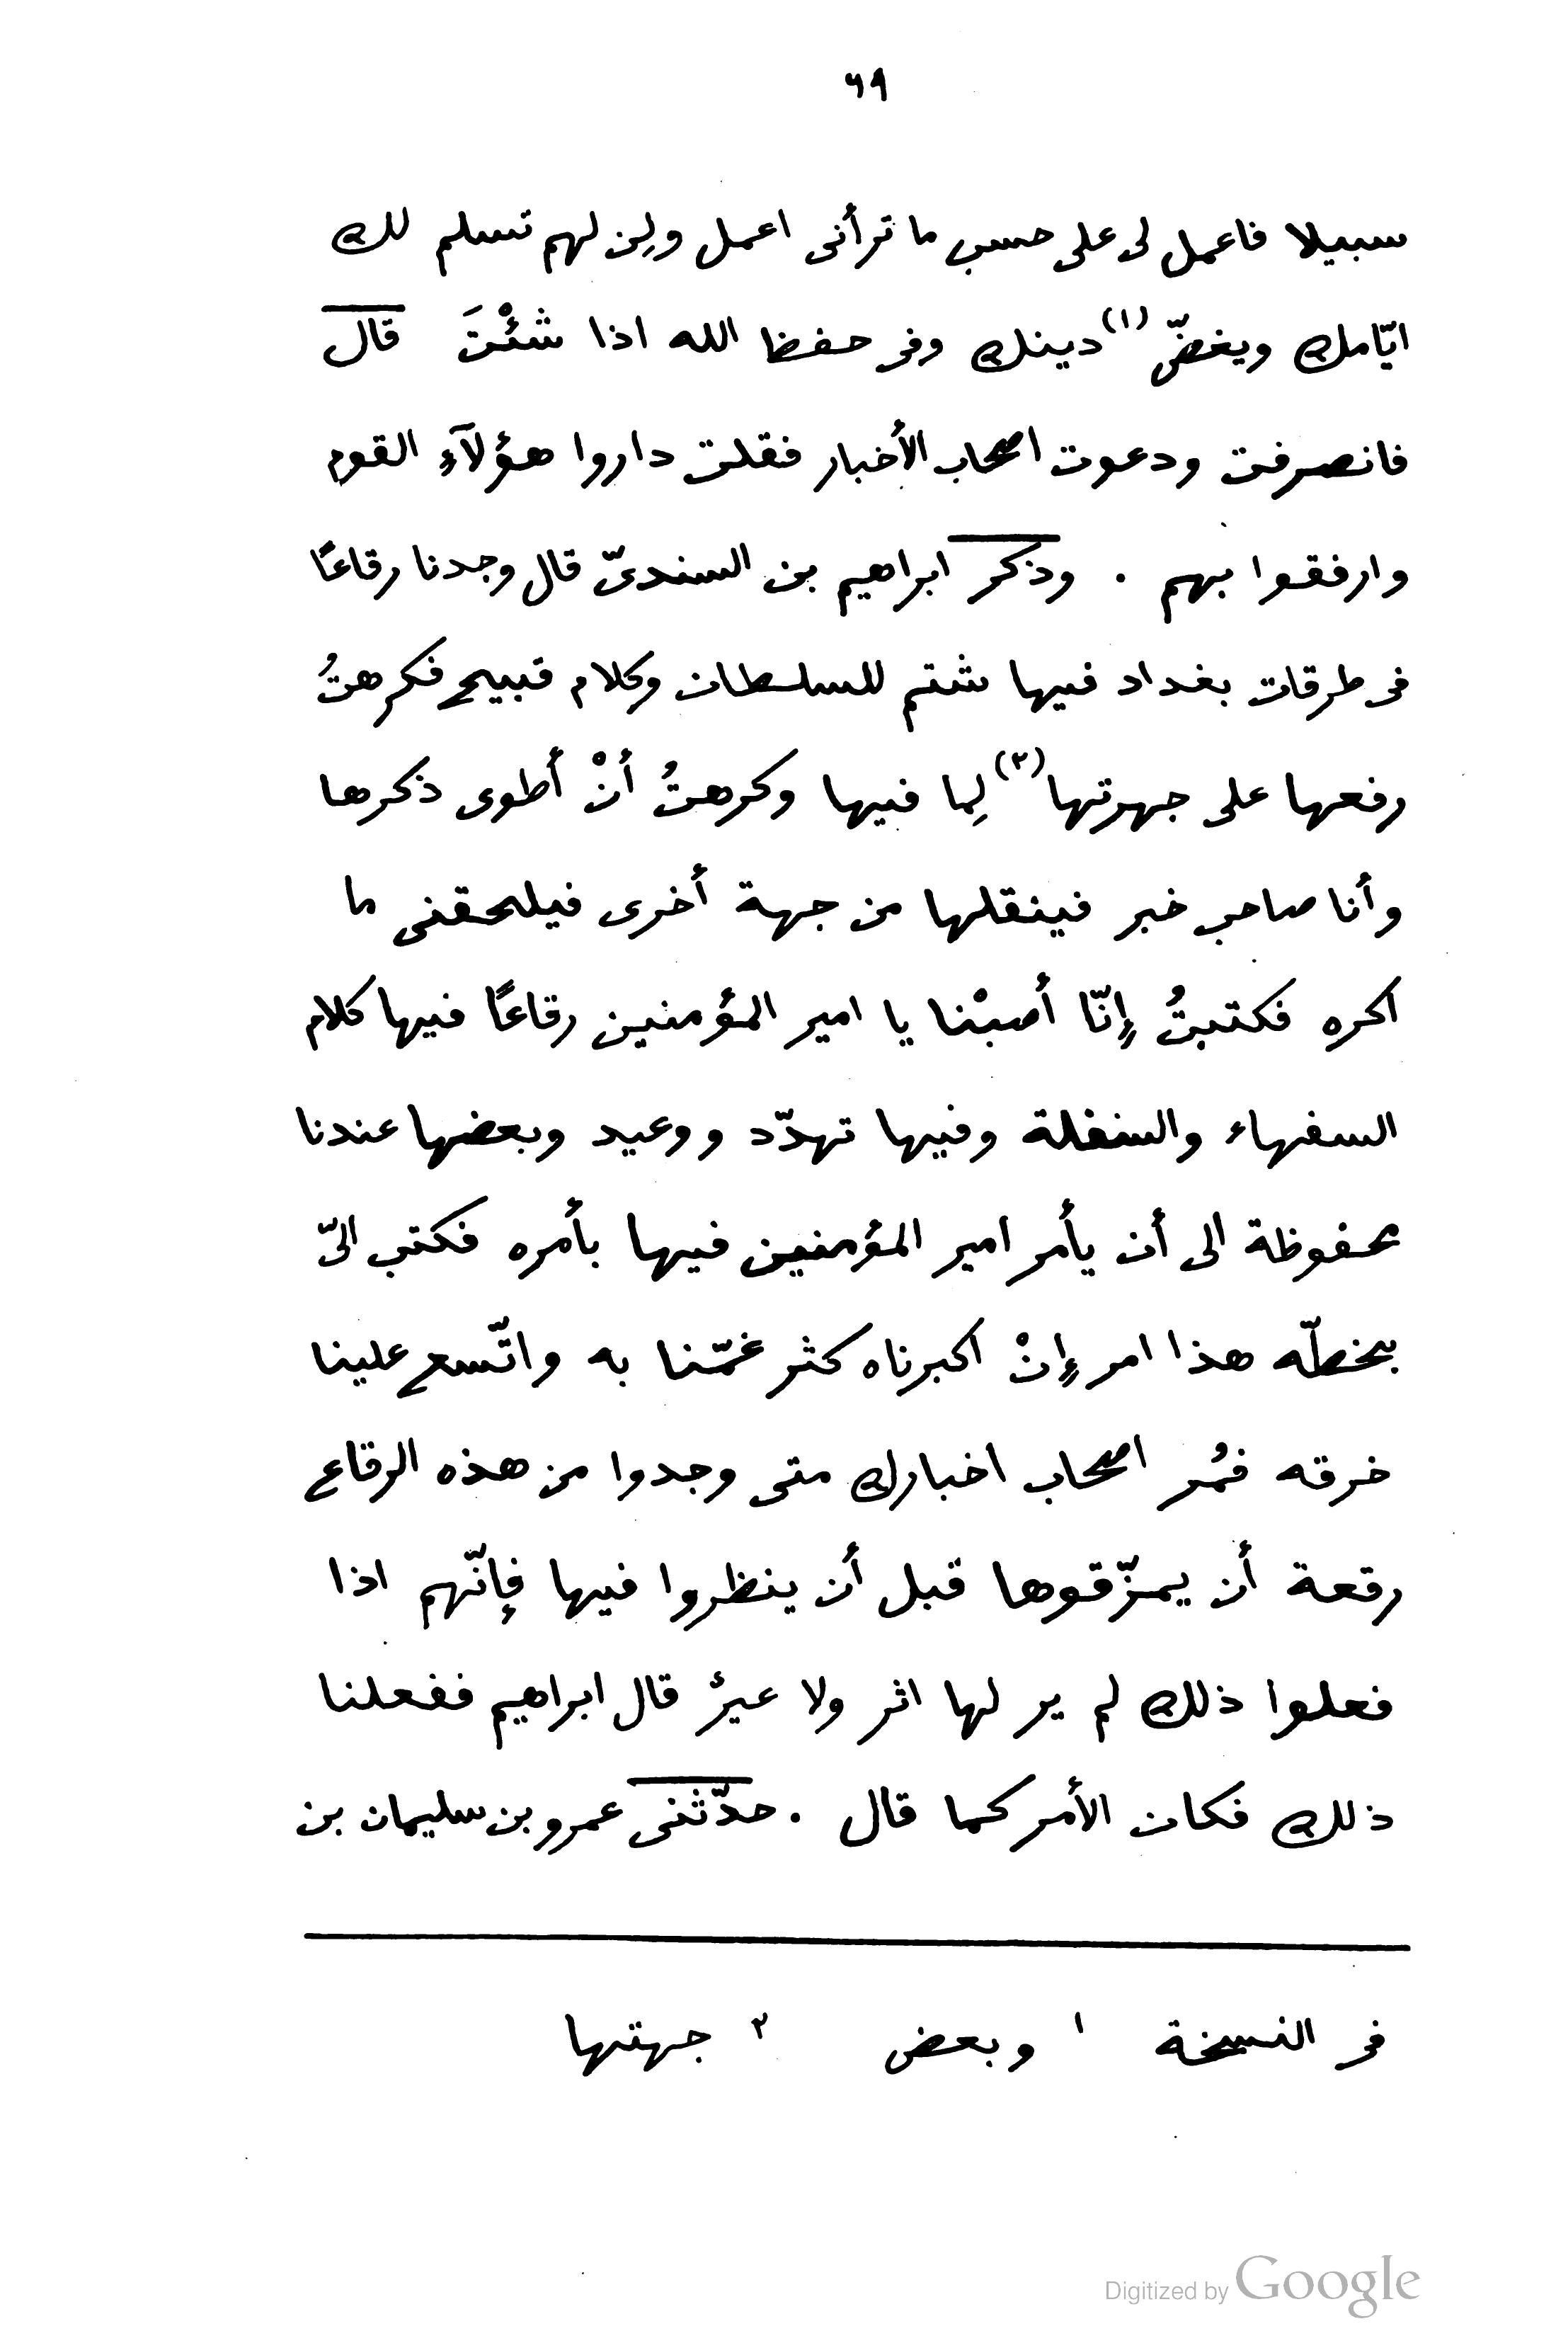 ٦٩
سبيلا فاعمل لى على حسب ما ترأنى اعمل ولِن لهم تسلم لك
ايّامك ويغضّ (١) دينك وفى حفظ الله اذا شئْتَ قال
فانصرفت ودعوت اصحاب الأخبار فقلت داروا هؤلآءِ القوم
وارفقوا بهم . وذكر ابراهيم بن السندىّ قال وجدنا رقاعًا
فى طرقات بغداد فيها شتم للسلطان وكلام قبيح فكرهتُ
رفعها على جهرتها (٢) لِما فيها وكرهتُ أنْ أطوى ذكرها
وأنا صاحب خبر فينقلها من جهة أخرى فيلحقنى ما
اكره فكتبتُ إنّا أصبْنا يا امير المؤمنين رقاعًا فيها كلام
السفهاء والسفلة وفيها تهدّد ووعيد وبعضها عندنا
محفوظة الى أن يأمر امير المؤمنين فيها بأمره فكتب الىّ
بخطّه هذا امر إنْ اكبرناه كثر غمّنا به واتّسع علينا
خرقه فمُر اصحاب اخبارك متى وجدوا من هذه الرقاع
رقعة أن يمزّقوها قبل أن ينظروا فيها فإنّهم اذا
فعلوا ذلك لم ير لها اثر ولا عيرٌ قال ابراهيم ففعلنا
ذلك فكان الأمر كما قال . حدّثنى عمرو بن سليمان بن
فى النسخة ١ وبعض ٢ جهتها
Digitized by Google